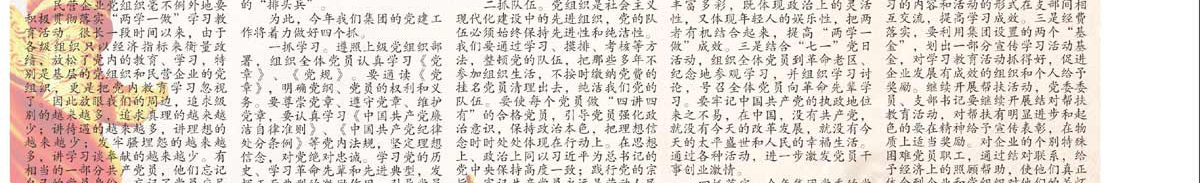 民营企业党组织毫不例外地要
积极贯彻落实“两学一做”学习教
育活动。很长一段时间以来，由于
各级组织只以经济指标来衡量政
绩，放松了党内的教育、学习，特
别是基层的党组织和民营企业的党
组织，更是把党内教育学习忽视
了。因此放眼我们的周边，追求级
别的越来越多，追求真理的越来越
少；讲待遇的越来越多，讲理想的
越来越少；发牢骚埋怨的越来越
多，讲学习谈奉献的越来越少。有
相当的一部分共产党员，他们忘记
的“排头兵”。
为此，今年我们集团的党建工
作将着力做好四个抓。
一抓学习。遵照上级党组织部
署，组织全体党员认真学习《党
章》、《党规》。要通读《党
章》，明确党纲、党员的权利和义
务。要尊崇党章、遵守党章、维护
党章，要认真学习《中国共产党廉
洁自律准则》、《中国共产党纪律
处分条例》等党内法规，坚定理想
信念，对党绝对忠诚。学习党的历
史、学习革命先辈和先进典型，发
二抓队伍。党组织是社会主义
现代化建设中的先进组织，党的队
伍必须始终保持先进性和纯洁性。
我们要通过学习、摸排、考核等方
法，整顿党的队伍，把那些多年不
参加组织生活，不按时缴纳党费的
挂名党员清理出去，纯洁我们党的
队伍。要使每个党员做“四讲四
有”的合格党员，引导党员强化政
治意识，保持政治本色，把理想信
念时时处处体现在行动上。在思想
上、政治上同以习近平为总书记的
党中央保持高度一致；践行党的宗
丰富多彩，既体现政治上的灵活
性，又体现年轻人的娱乐性，把两
者有机结合起来，提高“两学一
做”成效。三是结合“七一”党日
活动，组织全体党员到革命老区、
纪念地参观学习，并组织学习讨
论，号召全体党员向革命先辈学
习。要牢记中国共产党的执政地位
来之不易，在中国，没有共产党，
就没有今天的改革发展，就没有今
天的太平盛世和人民的幸福生活。
通过各种活动，进一步激发党员干
事创业激情。
习的内容和活动的形式在支部间相
互交流，提高学习成效。三是经费
落实，要利用集团设置的两个“基
金”，划出一部分宣传学习活动基
金，对学习教育活动抓得好，促进
企业发展有成效的组织和个人给予
奖励。继续开展帮扶活动，党委委
员、支部书记要继续开展结对帮扶
教育活动，对帮扶有明显进步和起
色的要在精神给予宣传表彰，在物
质上适当奖励。对企业的个别特殊
困难党员职工，通过结对联系，给
予经济上的照顾帮助，使他们真正